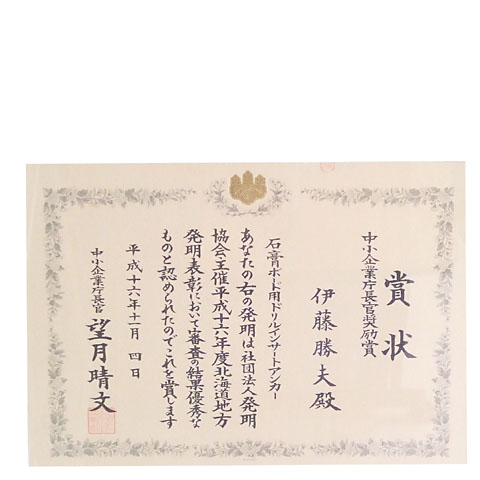 賞状
中小企業庁長官奨励賞
伊藤勝夫殿
石膏ボード用ドリルインサートアンカー
あなたの右の発明は社団法人発明
協会主催平成十六年度北海道地方
発明表彰において審査の結果優秀な
ものと認められたのでこれを賞します
平成十六年十一月四日
中小企業庁長官 望月晴文